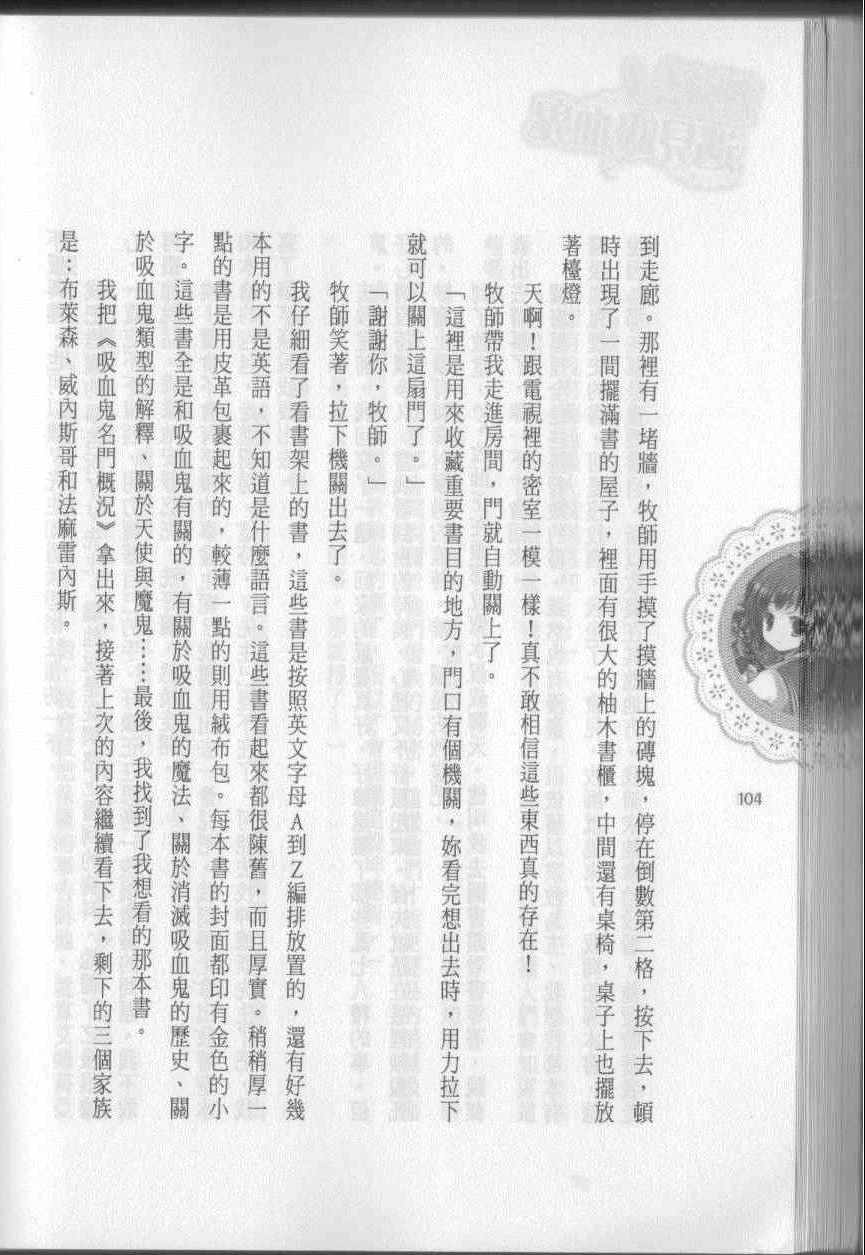 到走廊。那裡有一堵牆，牧師用手摸了摸牆上的磚塊，停在倒數第二格，按下去，頓
時出現了一間擺滿書的屋子，裡面有很大的柚木書櫃，中間還有桌椅，桌子上也擺放
著檯燈。
天啊！跟電視裡的密室一模一樣！真不敢相信這些東西真的存在！
牧師帶我走進房間，門就自動關上了。
「這裡是用來收藏重要書目的地方，門口有個機關，妳看完想出去時，用力拉下
就可以關上這扇門了。」
「謝謝你，牧師。」
牧師笑著，拉下機關出去了。
我仔細看了看書架上的書，這些書是按照英文字母A到Z編排放置的，還有好幾
本用的不是英語，不知道是什麼語言。這些書看起來都很陳舊，而且厚實。稍稍厚一
點的書是用皮革包裹起來的，較薄一點的則用絨布包。每本書的封面都印有金色的小
字。這些書全是和吸血鬼有關的，有關於吸血鬼的魔法、關於消滅吸血鬼的歷史、關
於吸血鬼類型的解釋、關於天使與魔鬼……最後，我找到了我想看的那本書。
我把《吸血鬼名門概況》拿出來，接著上次的內容繼續看下去，剩下的三個家族
是：布萊森、威內斯哥和法麻雷內斯。
104